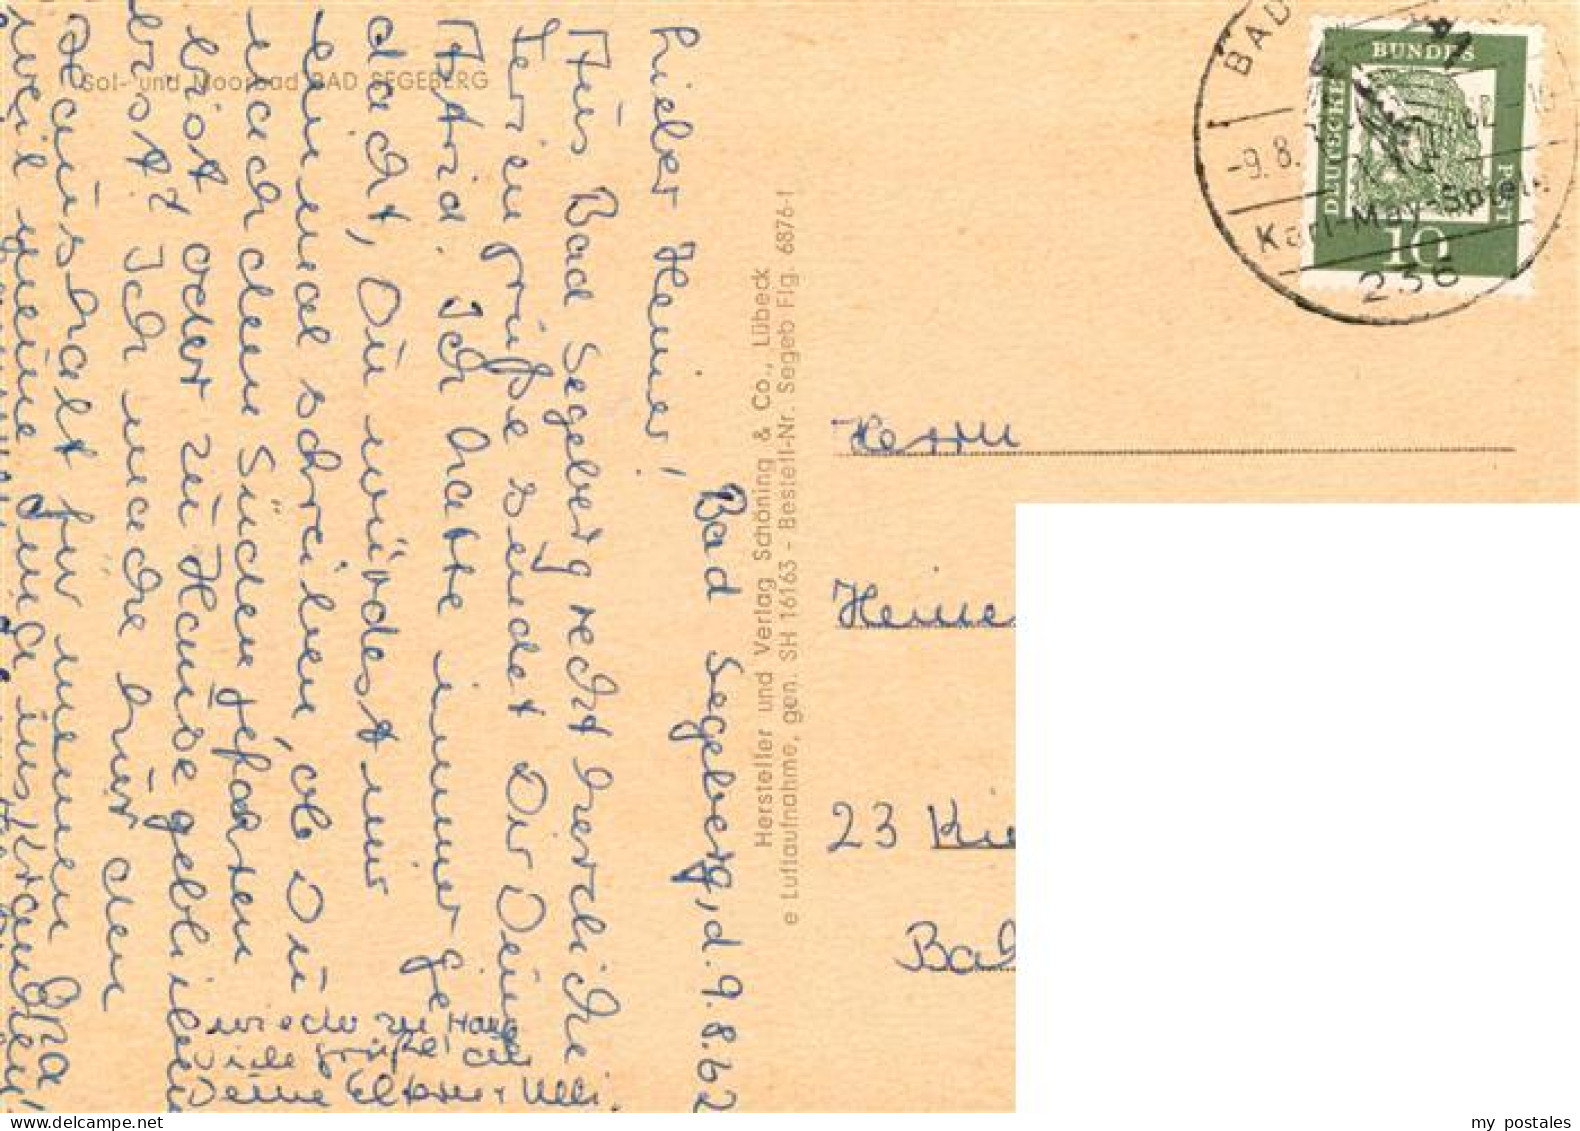 Sol- und Moorbad BAD SEGEBERG
Bad Segeberg, d. 9.8.62
Lieber Heiner!
Aus Bad Segeberg recht herzliche
Feriengrüße sendet Dir Deine
Astrid. Ich hatte immer ge-
dacht, Du würdest mir
einmal schreiben, ob Du
nach dem Süden gefahren
bist oder zu Hause geblieben
bist? Ich mache hier den
Haushalt für meinen Opa
weil meine
ins Kranken
wieder zu Haus
Viele Grüße an
Deine Eltern + Ulli.
Hersteller und Verlag Schöning & Co., Lübeck
e Luftaufnahme, gen. SH 16163 - Bestell-Nr. Segeb Flg. 6876-1
BAD
-9.8.
Karl-May-Spiele
236
DEUTSCHE
BUNDES
POST
10
Herrn
Heine
23 Kie
Bad
my postales